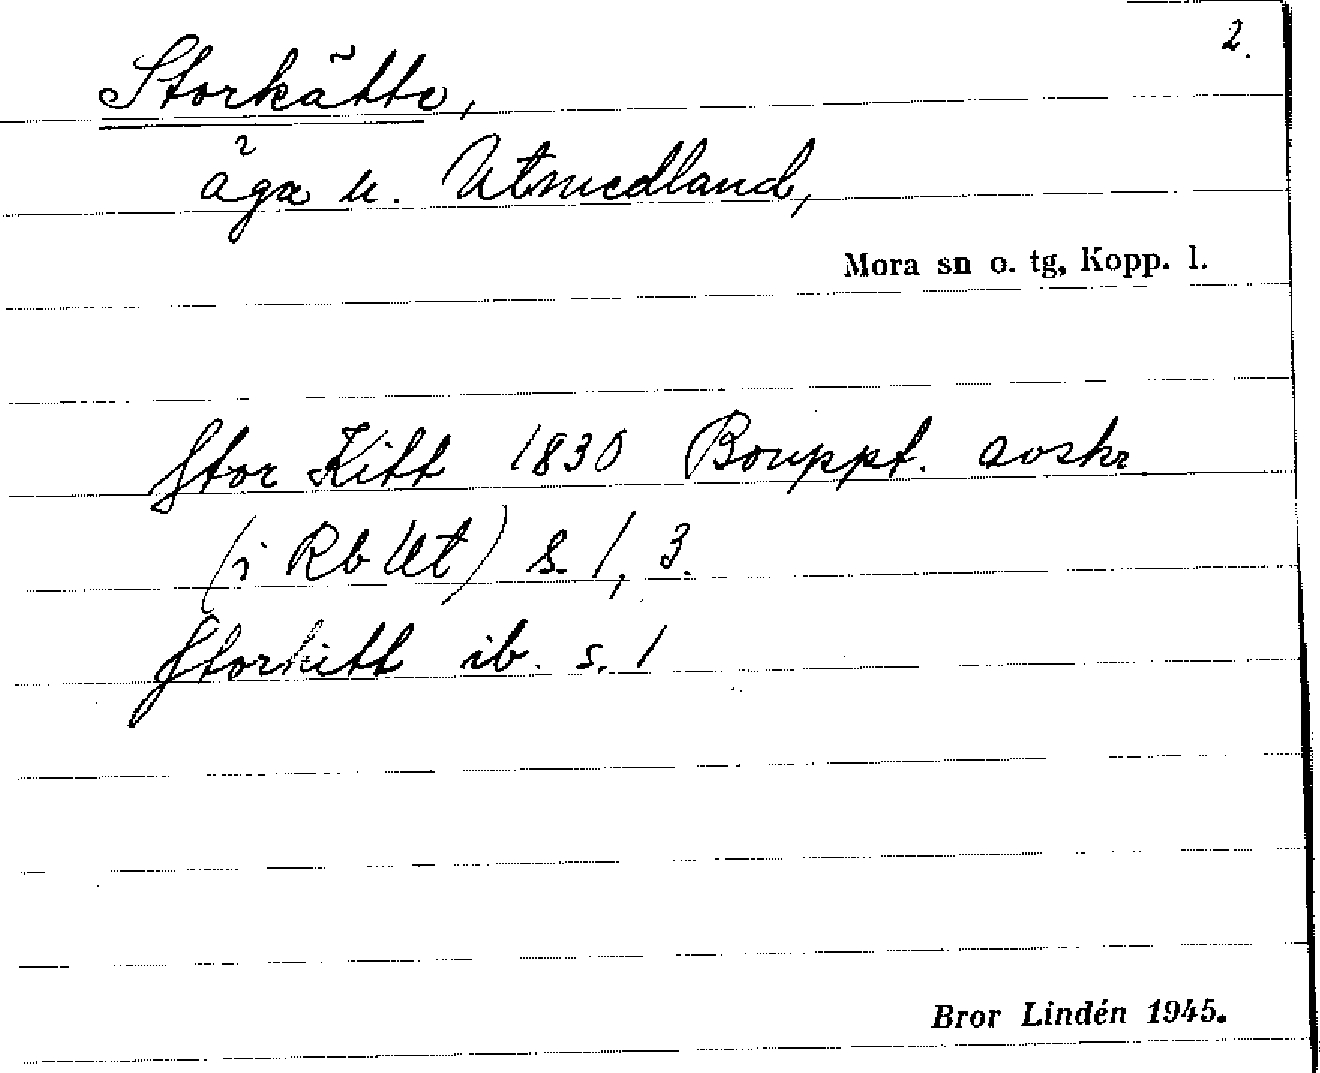 2.
Storkätte,
äga u. Utmedland,
Mora sn o. tg, Kopp. l.
Stor Kitt 1830 Bouppt. avskr
(i Rb Ut) s. 1, 3.
Storkitt ib. s. 1
Bror Lindén 1945.